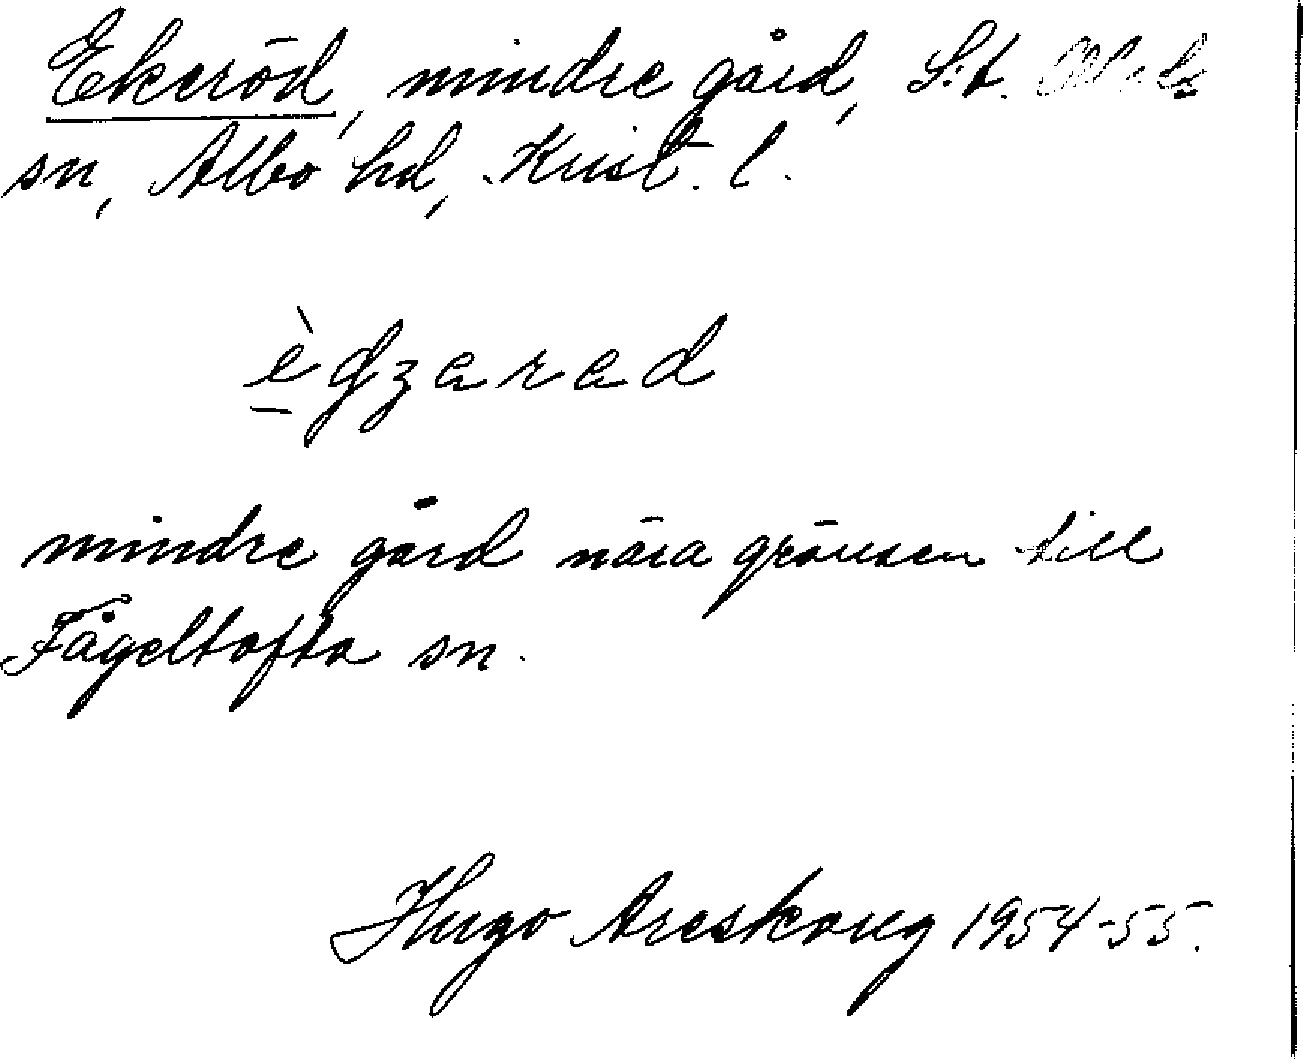 Ekeröd, mindre gård, S:t. Olofs
sn, Albo hd, Krist. l.
mindre gård nära gränsen till
Fågeltofta sn.
Hugo Areskoug 1954-55.